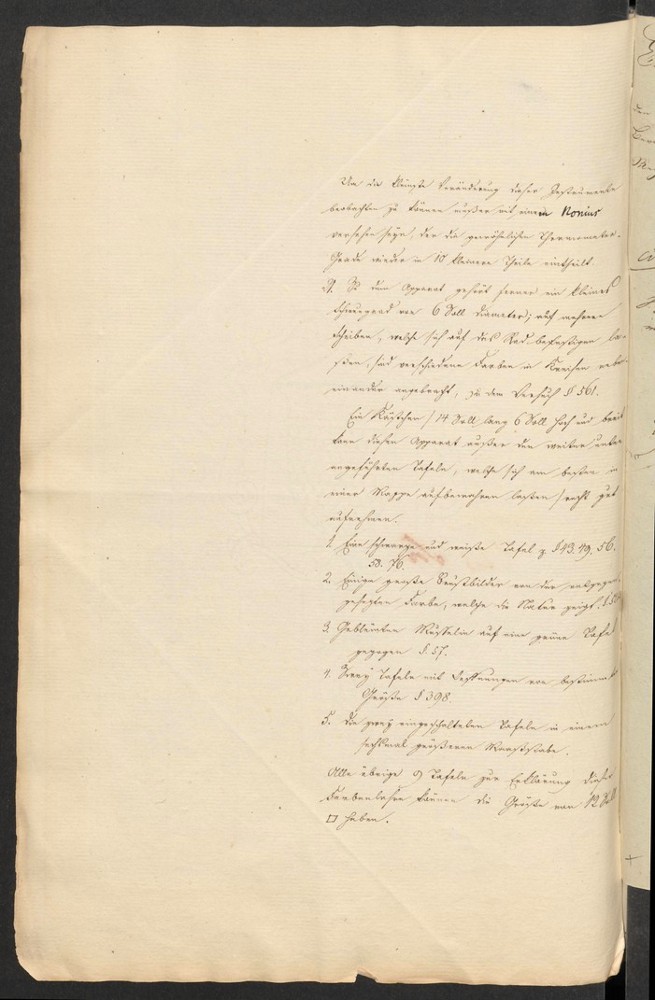 Um die kleinste Veränderung dieser Instrumente
beobachten zu können müssen mit einem Nonius
versehen seyn, der die gewöhnlichen Thermometer-
Grade wieder in 10 kleinere Theile eintheilt.
9. Zu dem Apparat gehört ferner ein kleines
Schwungrad von 6 Zoll Diameter; auf mehrere
Scheiben, welche sich auf das Rad befestigen la-
ßen, sind verschiedene Farben in Kreisen neben
einander angebracht, zu dem Versuch § 561.
Ein Kästchen / 14 Zoll lang 6 Zoll hoch und breit
kann diesen Apparat außer den weiter unten
angeführten Tafeln, welche sich am besten in
einer Mappe aufbewahren lassen / recht gut
aufnehmen.
1. Eine schwarze und weiße Tafel z. §43. 49. 56.
58. 76.
2. Einige große Brustbilder von der entgegen
gesetzten Farbe, welche die Natur zeigt.
3. Geblümten Musselin auf eine graue Tafel
gezogen §. 57.
4. Zwey Tafeln mit Oeffnungen von bestimmter
Größe § 398.
5. Die zwey eingeschalteten Tafeln in einem
sechsmal größeren Maasstabe.
Alle übrige 9 Tafeln zur Erklärung dieser
Farbenlehre können die Größe von 12 Zoll
□ haben.